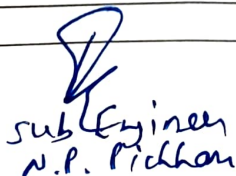 Sub Engineer
N.P. Pichhore